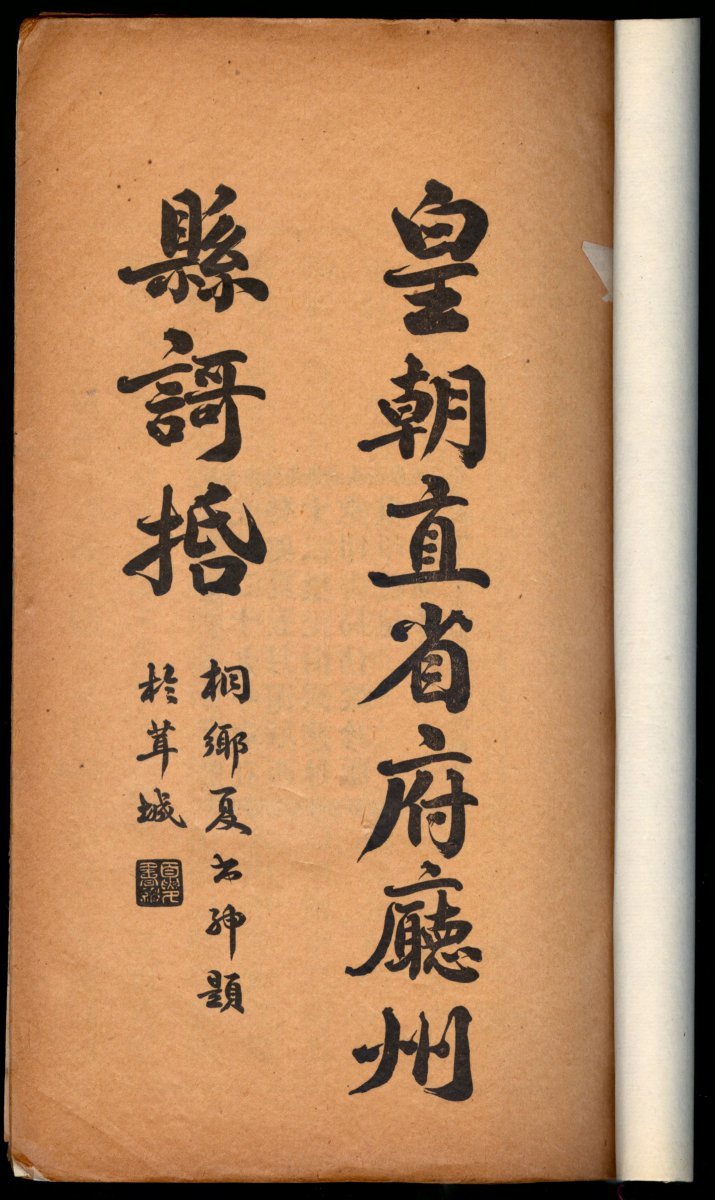 皇朝直省府廳州
縣謌括
桐鄉夏書紳題
於茸城